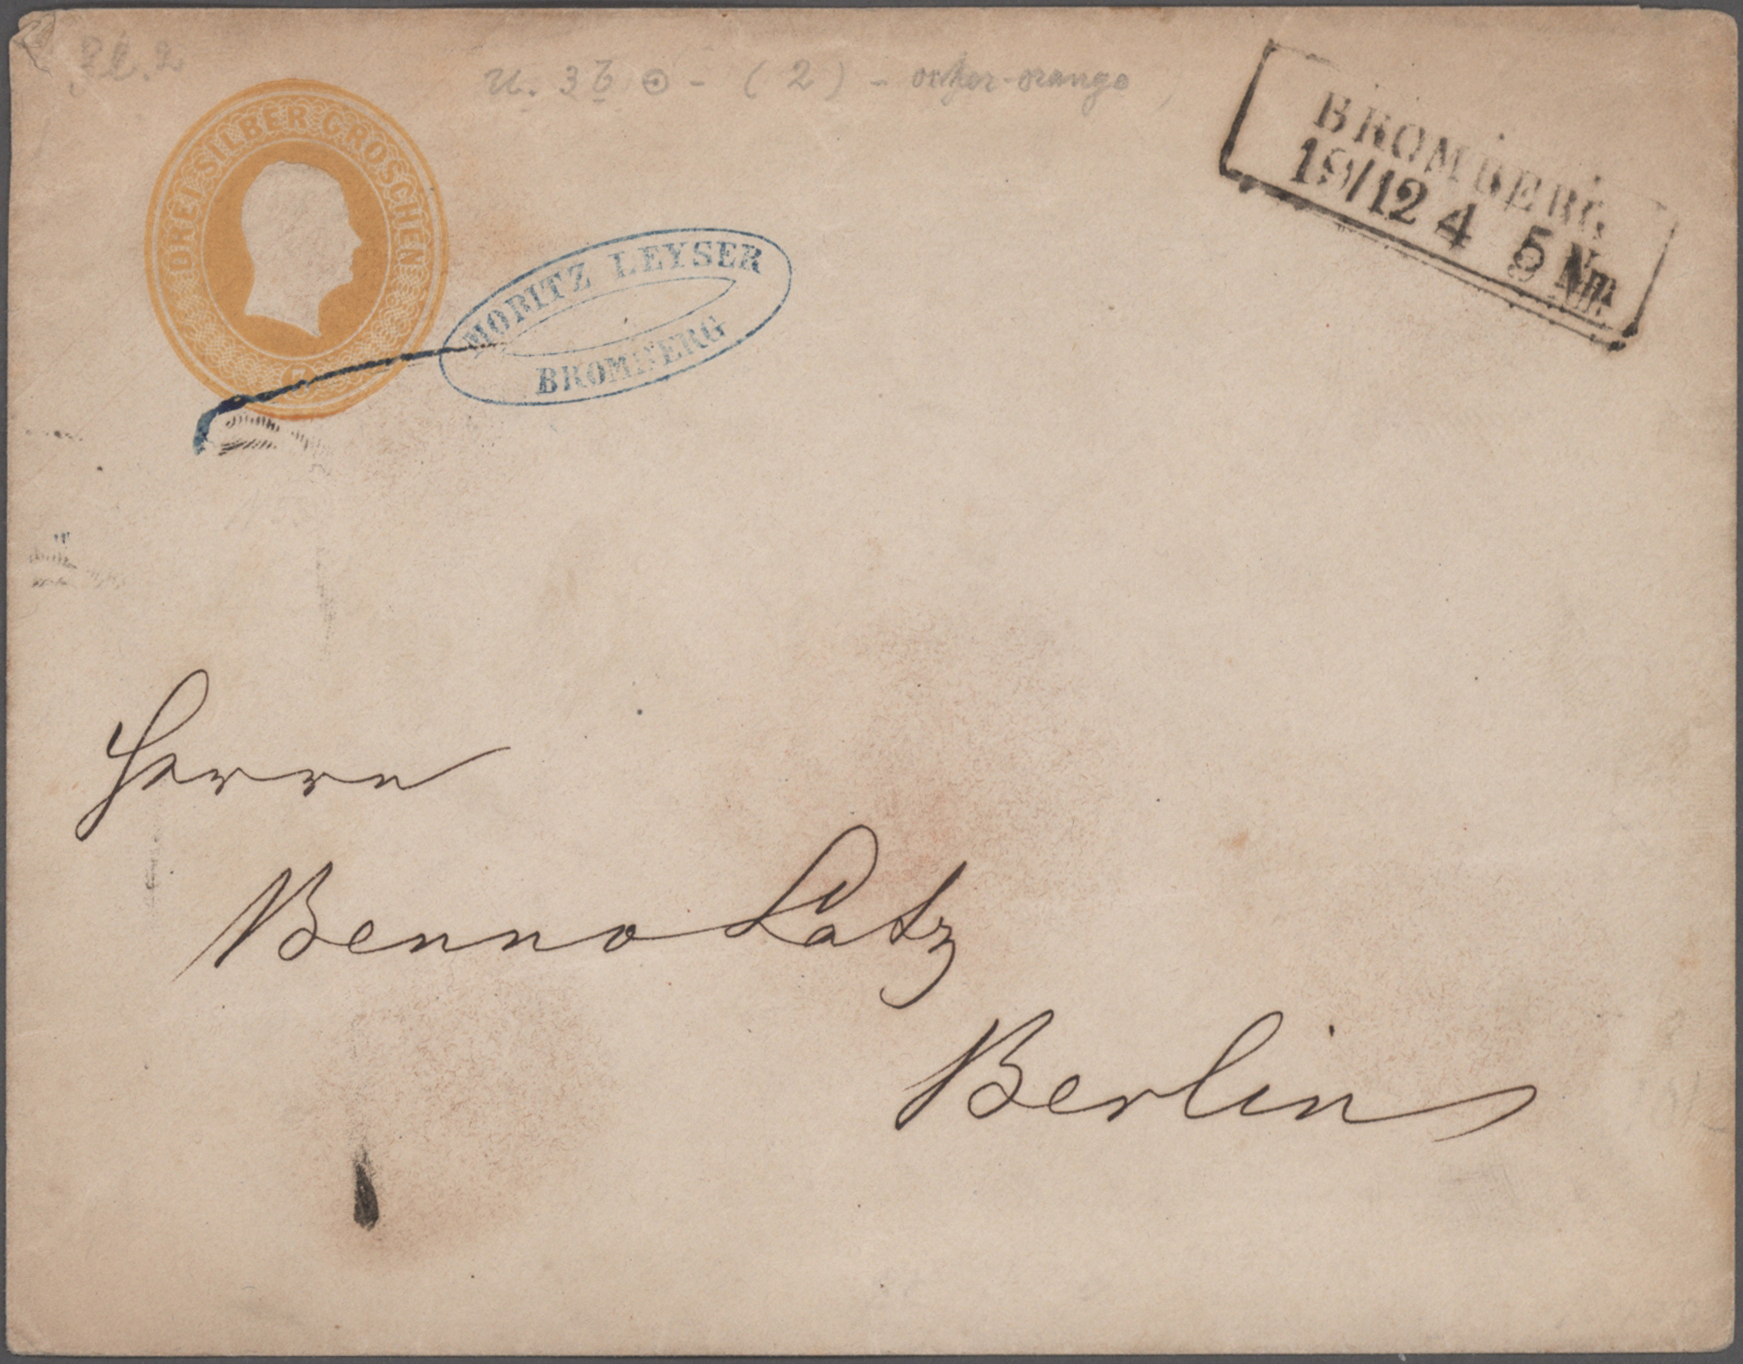 U. 3b ⊙ - ( 2 ) - ocker-orange
DREI SILBER GROSCHEN
3
MORITZ LEYSER
BROMBERG
BROMBERG
19/12 4 5 Nm
Herrn
Benno Latz
Berlin